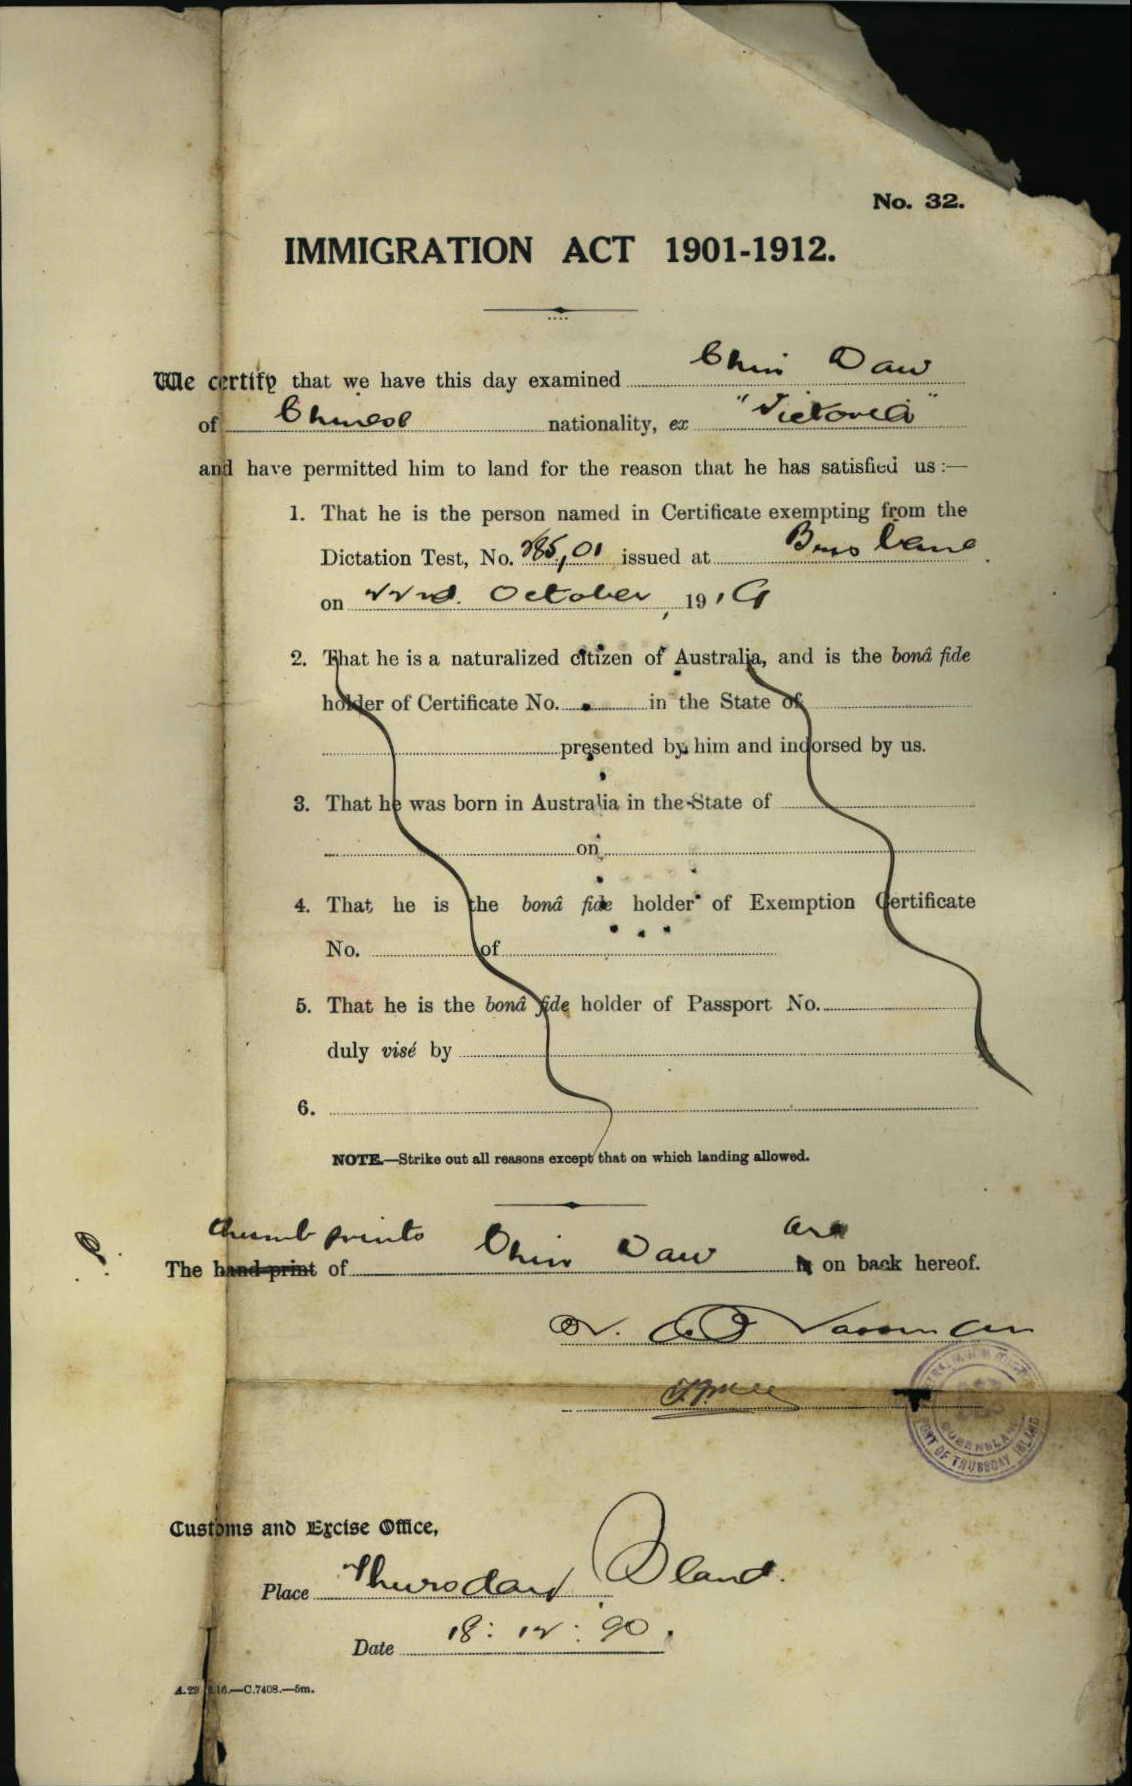 No. 32.
IMMIGRATION ACT 1901-1912.
We certify that we have this day examined Chin Daw
of Chinese nationality, ex "Victoria"
and have permitted him to land for the reason that he has satisfied us:—
1. That he is the person named in Certificate exempting from the
Dictation Test, No. 285/01 issued at Brisbane
on 22nd. October, 1919
2. That he is a naturalized citizen of Australia, and is the bonâ fide
holder of Certificate No. in the State of
presented by him and indorsed by us.
3. That he was born in Australia in the State of
on
4. That he is the bonâ fide holder of Exemption Certificate
No. of
5. That he is the bonâ fide holder of Passport No.
duly visé by
6.
NOTE.—Strike out all reasons except that on which landing allowed.
thumb prints are
The hand-print of Chin Daw is on back hereof.
QUEENSLAND
PORT OF THURSDAY ISLAND
Customs and Excise Office,
Place Thursday Island.
Date 18:12:20.
16.—C.7408.—5m.